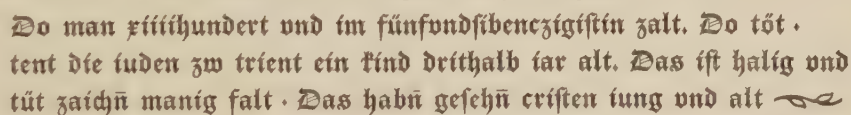 Do man xiiiihundert vnd im fünfvndſibenczigiſtin zalt. Do töt ·
tent die iuden zw trient ein kind drithalb iar alt. Das iſt halig vnd
tüt zaichn̄ manig falt · Das habn̄ geſehn̄ criſten iung vnd alt